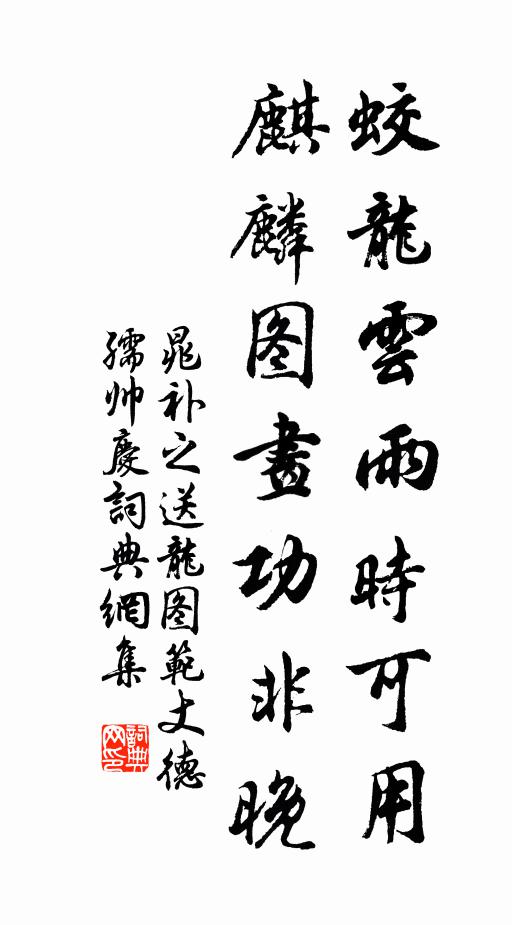 蛟龍雲雨時可用
麒麟图畫功非晚
晁补之送龍图範丈德
孺帅慶詞典網集
詞典网印